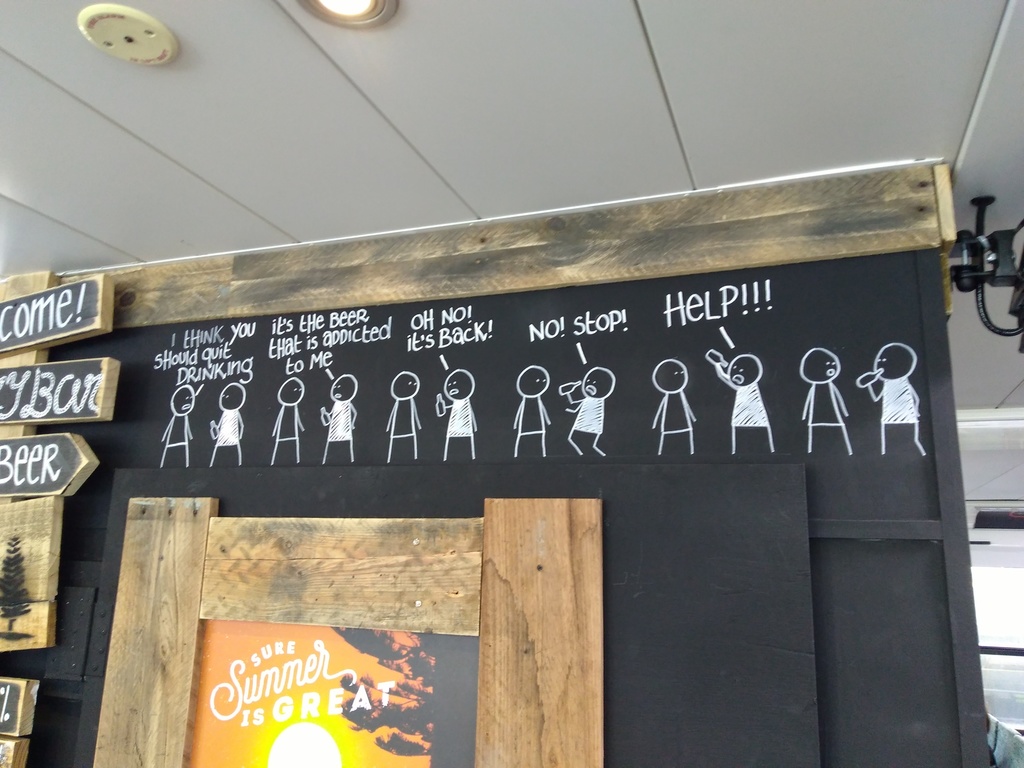 come!
Y Bar
BEER
%
I THINK YOU
SHOULD QUIT
DRINKING
it's THE BEER
THAT is ADDICTED
to ME
OH NO!
it's BACK!
NO! STOP!
HELP!!!
SURE
Summer
IS GREAT